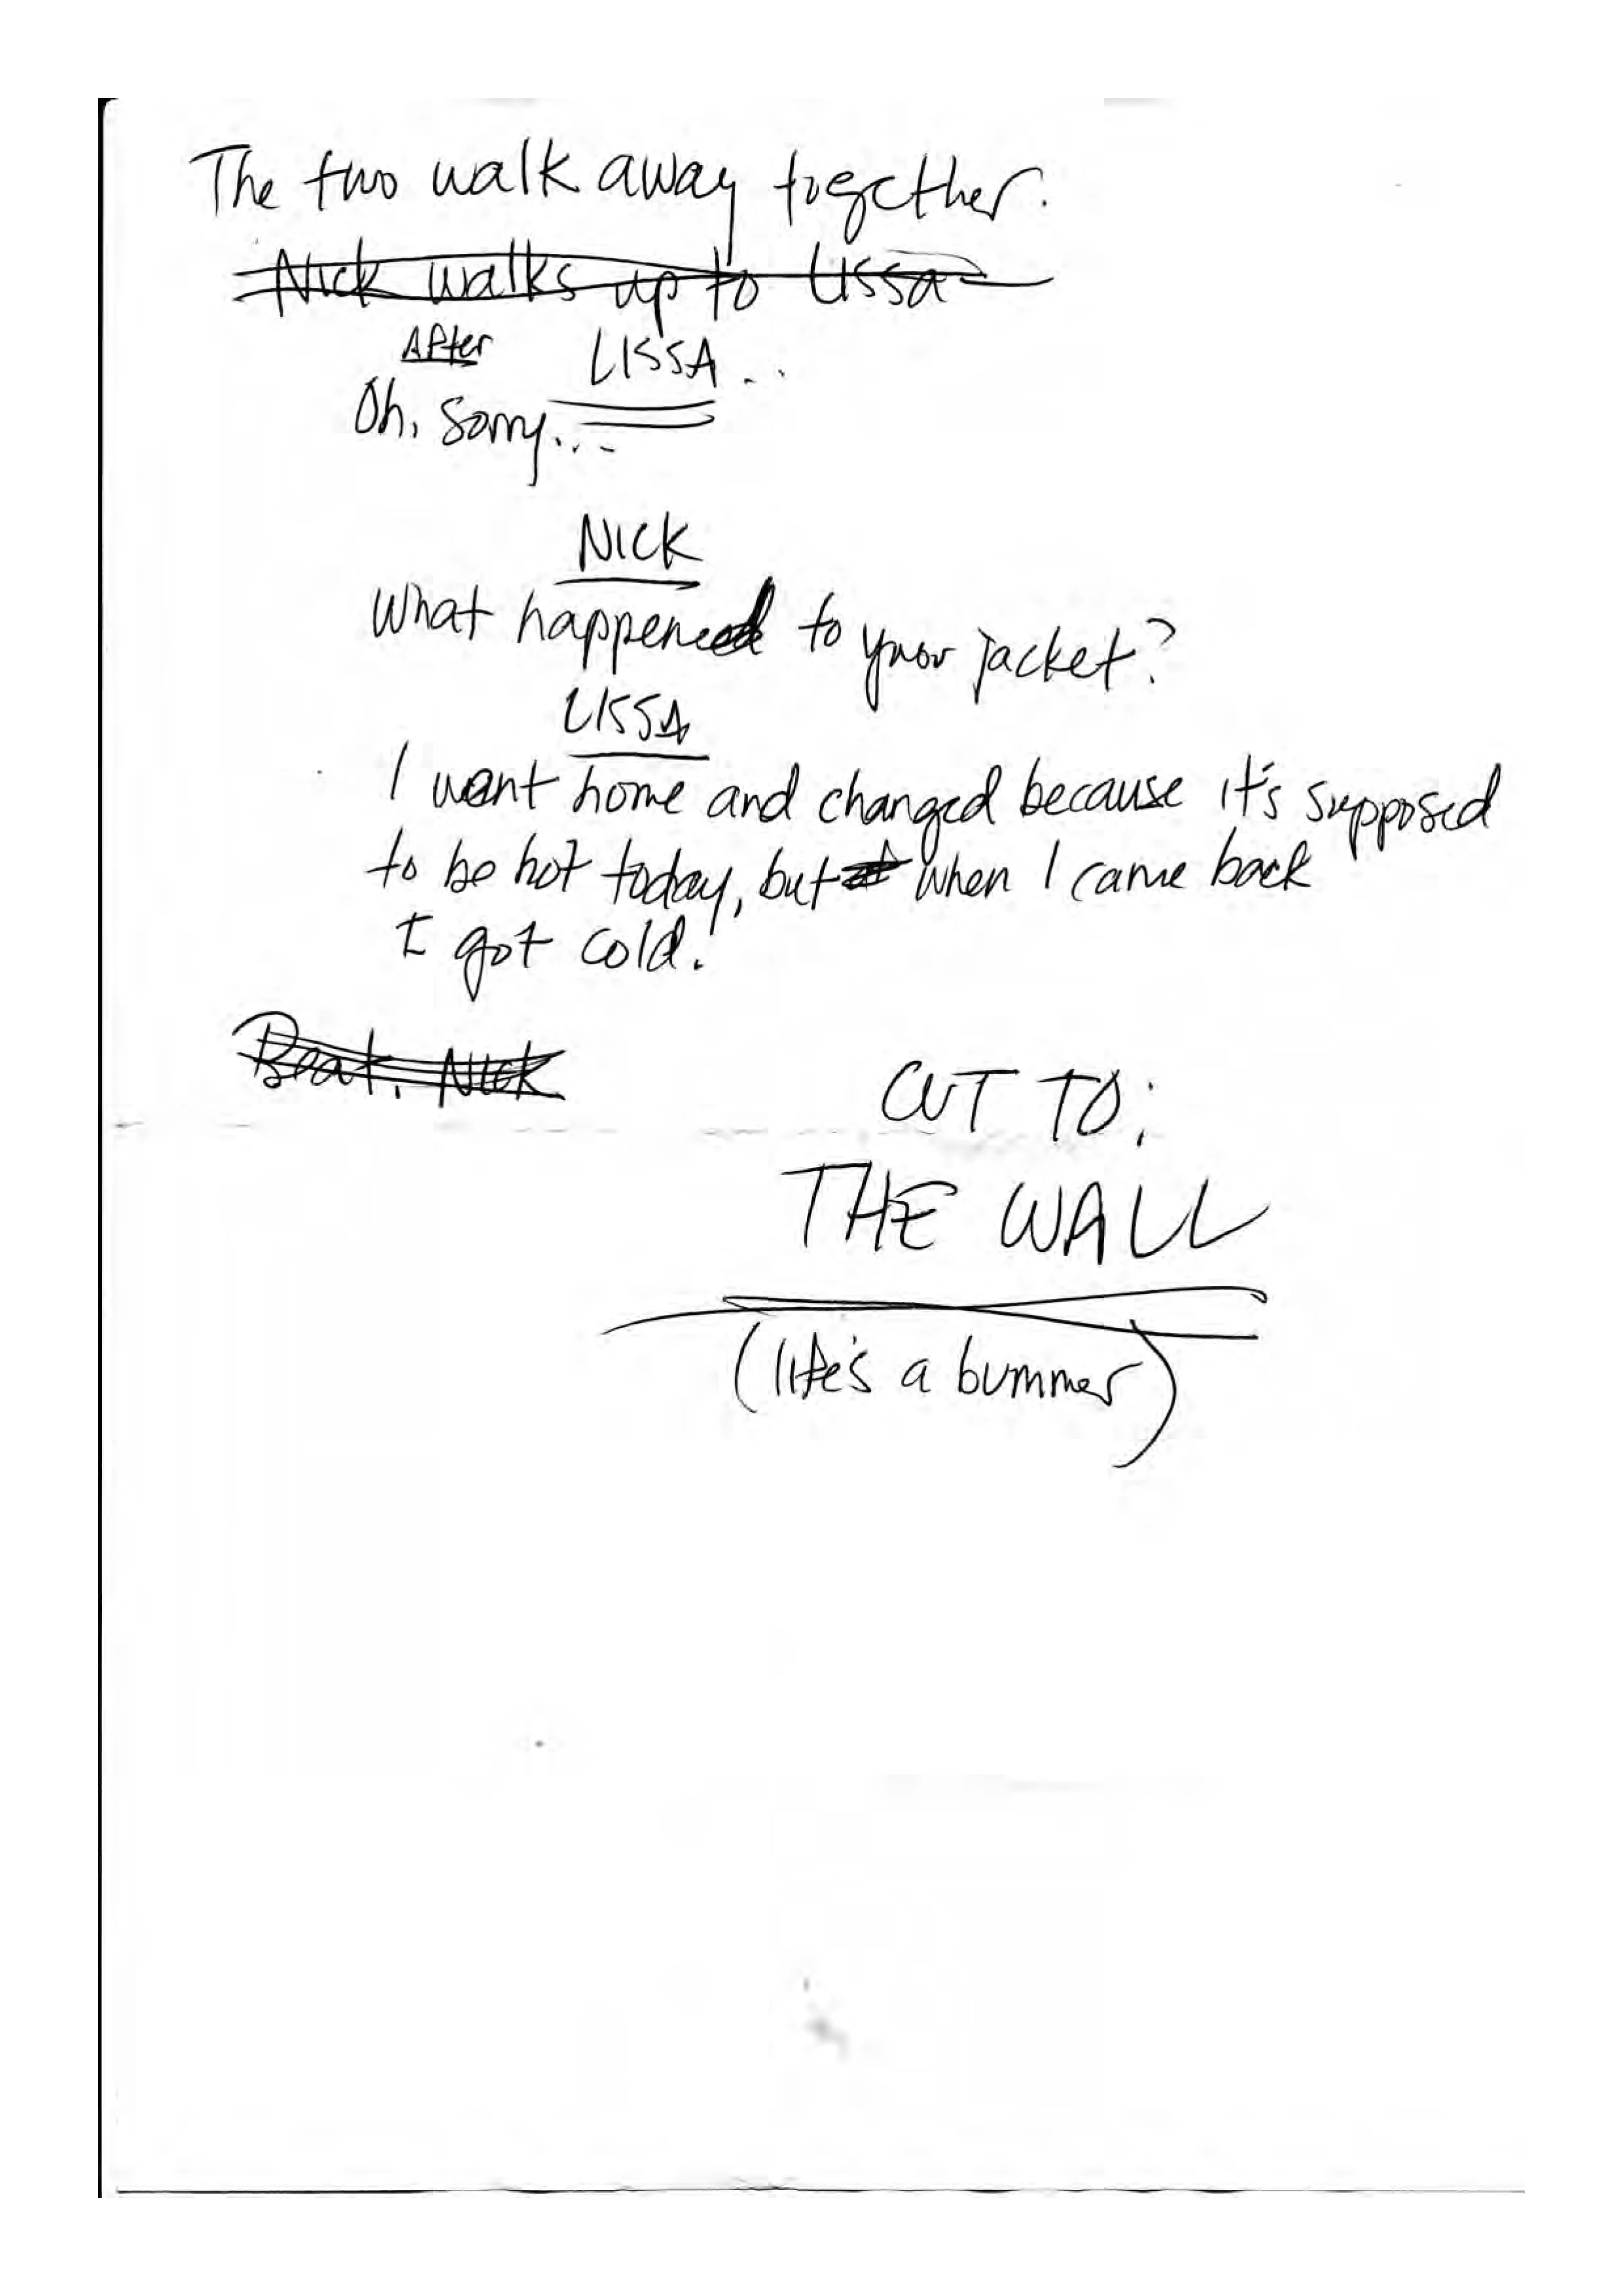 The two walk away together.
Nick walks up to Lissa
After LISSA...
Oh, sorry....
NICK
What happened to your jacket?
LISSA
I went home and changed because it's supposed
to be hot today, but when I came back
I got cold.
Beat. Nick
CUT TO:
THE WALL
(life's a bummer)